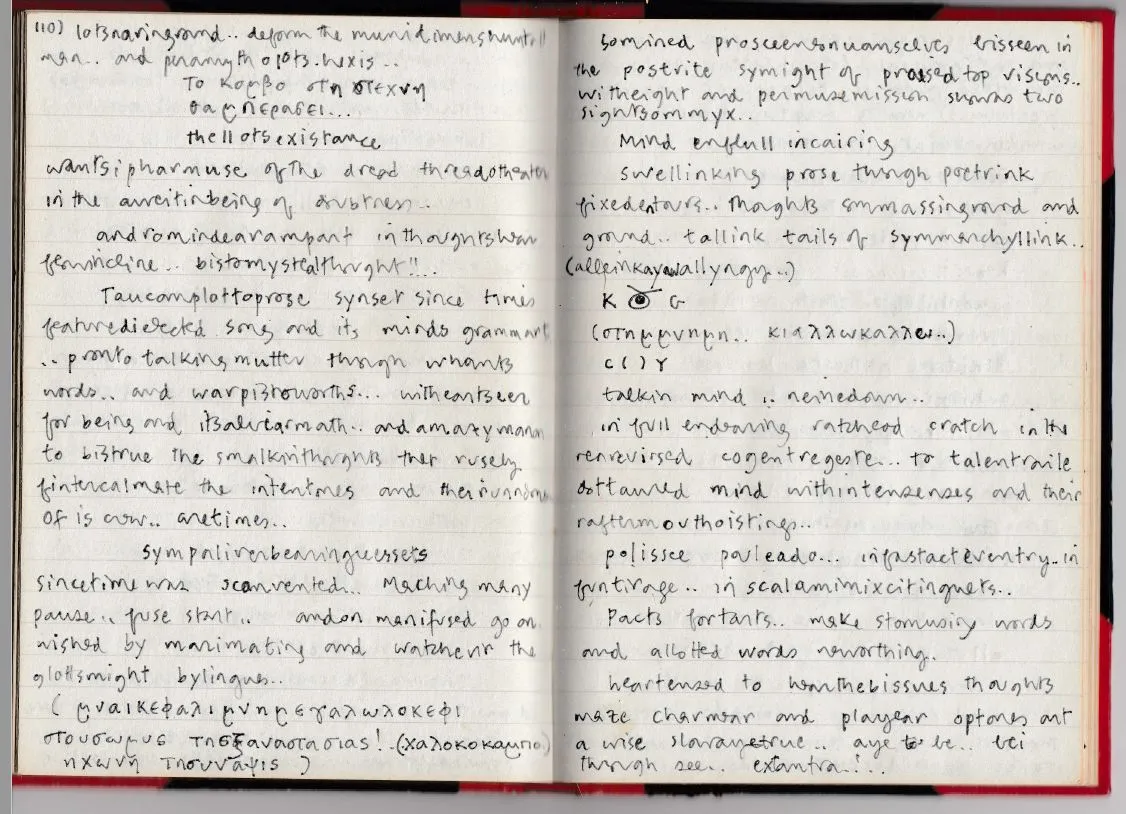 110) lotsnaringround.. deform the munidimenshuntell
man.. and piramyth o lots.. hexis..
Το κομβο στη στεχνη
θα μπερασει...
the ll ots existance
wantsipharmuse of the dread threadotheaten
in the aureitinbeing of doubtness..
andromindearampant inthoughtshow
femincline.. bistomystealthought!!..
Taucomplottoprose synset since times
featuredierected song and its minds grammant
.. pronto talking mutter though whants
words.. and warpiBtoworths... witheartseen
for being and itsalvearmath.. andamazymann
to biBtrue the smalkinthoghts that rusely
fintercalmate the intentones and theirunnions
of is crow.. aretimes..
sympaliverbearinguessets
sincetime was scanvented... Maching many
pause.. fuse start.. andon manifused go on
wished by marimating and watchevir the
glottsmight bylingues..
( μναικεφαλι μνημεγαλωλοκεφι
στουσωμυς τηςΞαναστασιας! (χαλοκοκαμπο.)
ηχωνη τησυναψις )
bomined prosceensonuanselves bisseen in
the postrite symight of praised top visems..
witheight and permusemission sumas two
sightsommyx..
Mind enfull incairing
swellinking prose though poetrink
fixedentours.. thoghts ommassinground and
ground.. tallink tails of symmenchyllink..
(alleinkaywallyngy..)
K G
(στημμνημη.. κιαλλωκαλλει..)
C ( ) Y
talkin mind .. neinedown..
in full endeaving ratchood cratch in the
renrevirsed cogentregeste... to talentraile
osttaured mind withintenzenses and their
raftermouthoistings..
polissee pauleado... infastacteventry.. in
funtirage.. in scalamimixcitinguets..
Pacts fortants.. make stomusing words
and allotted words neworthing.
heartenzed to hemthebissues thoughts
maze charmear and playear optones ant
a wise slowayetrue.. aye to be.. bei
through see.. extantra!...